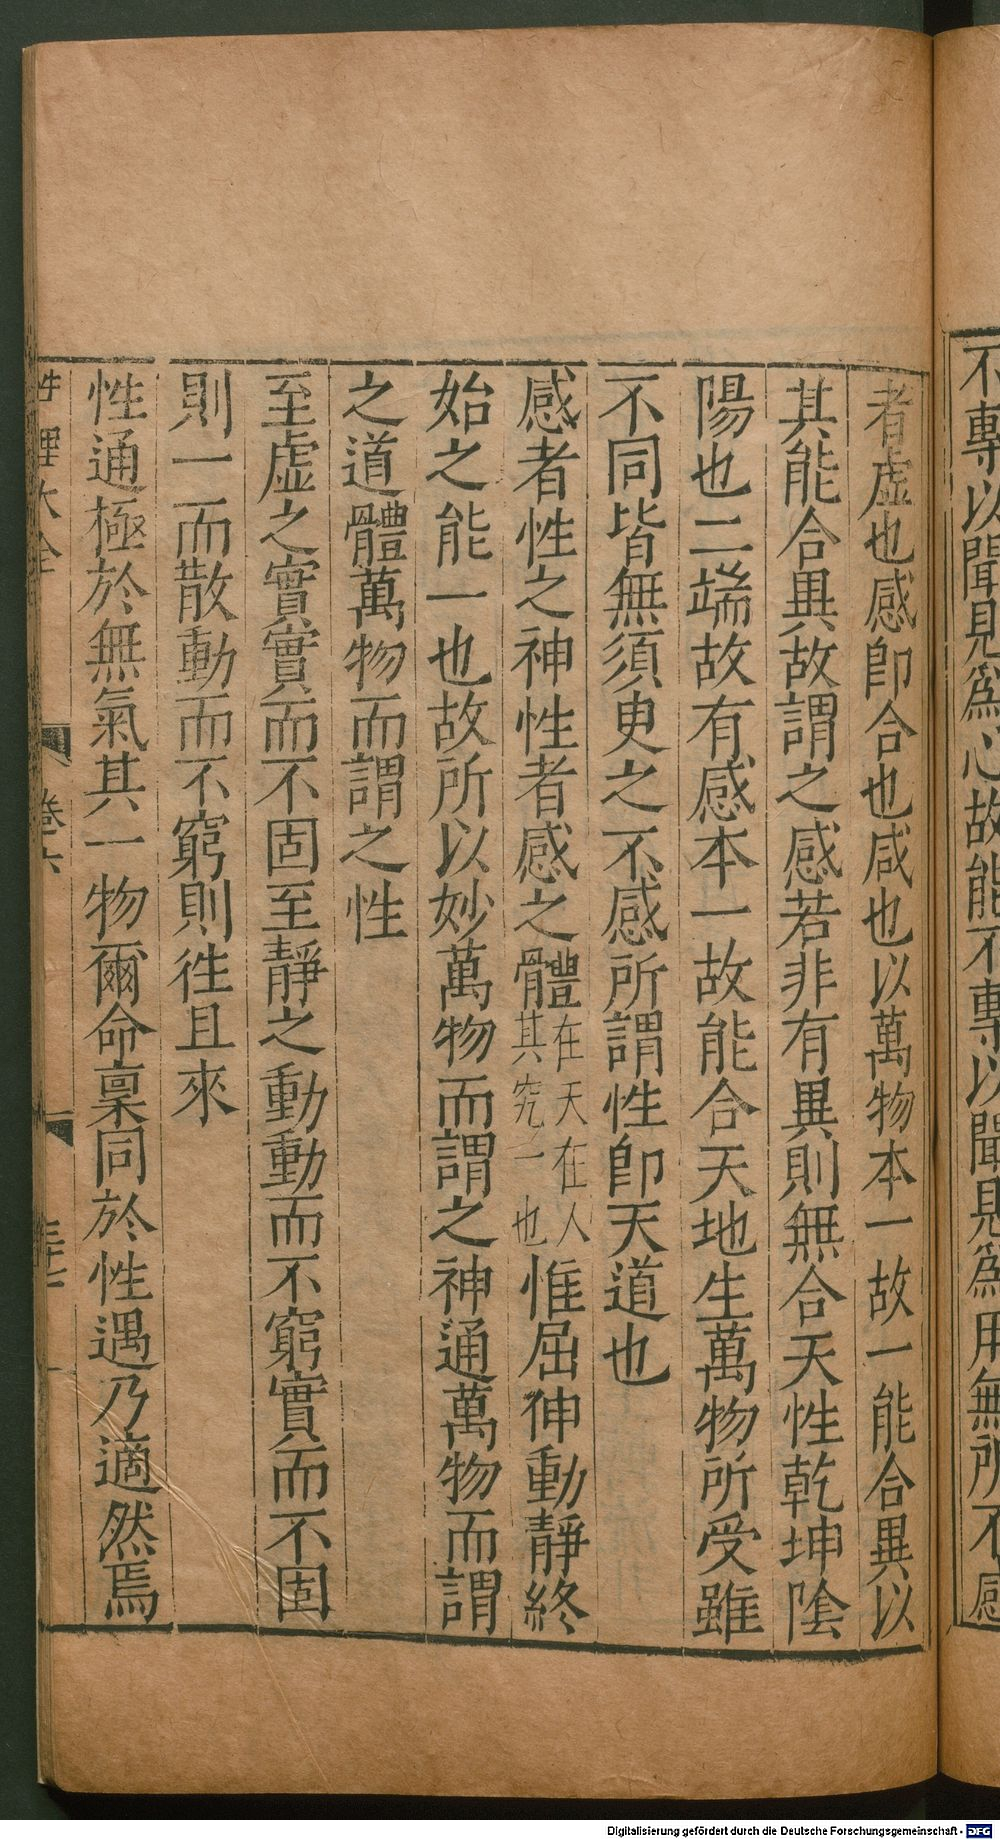 不專以聞見爲心故能不專以聞見爲用無所不感
者虛也感卽合也咸也以萬物本一故一能合異以
其能合異故謂之感若非有異則無合天性乾坤陰
陽也二端故有感本一故能合天地生萬物所受雖
不同皆無須臾之不感所謂性卽天道也
感者性之神性者感之體在天在人其究一也惟屈伸動靜終
始之能一也故所以妙萬物而謂之神通萬物而謂
之道體萬物而謂之性
至虛之實實而不固至靜之動動而不窮實而不固
則一而散動而不窮則徃且來
性通極於無氣其一物爾命稟同於性遇乃適然焉
性理大全 卷六 三十七
Digitalisierung gefördert durch die Deutsche Forschungsgemeinschaft - DFG